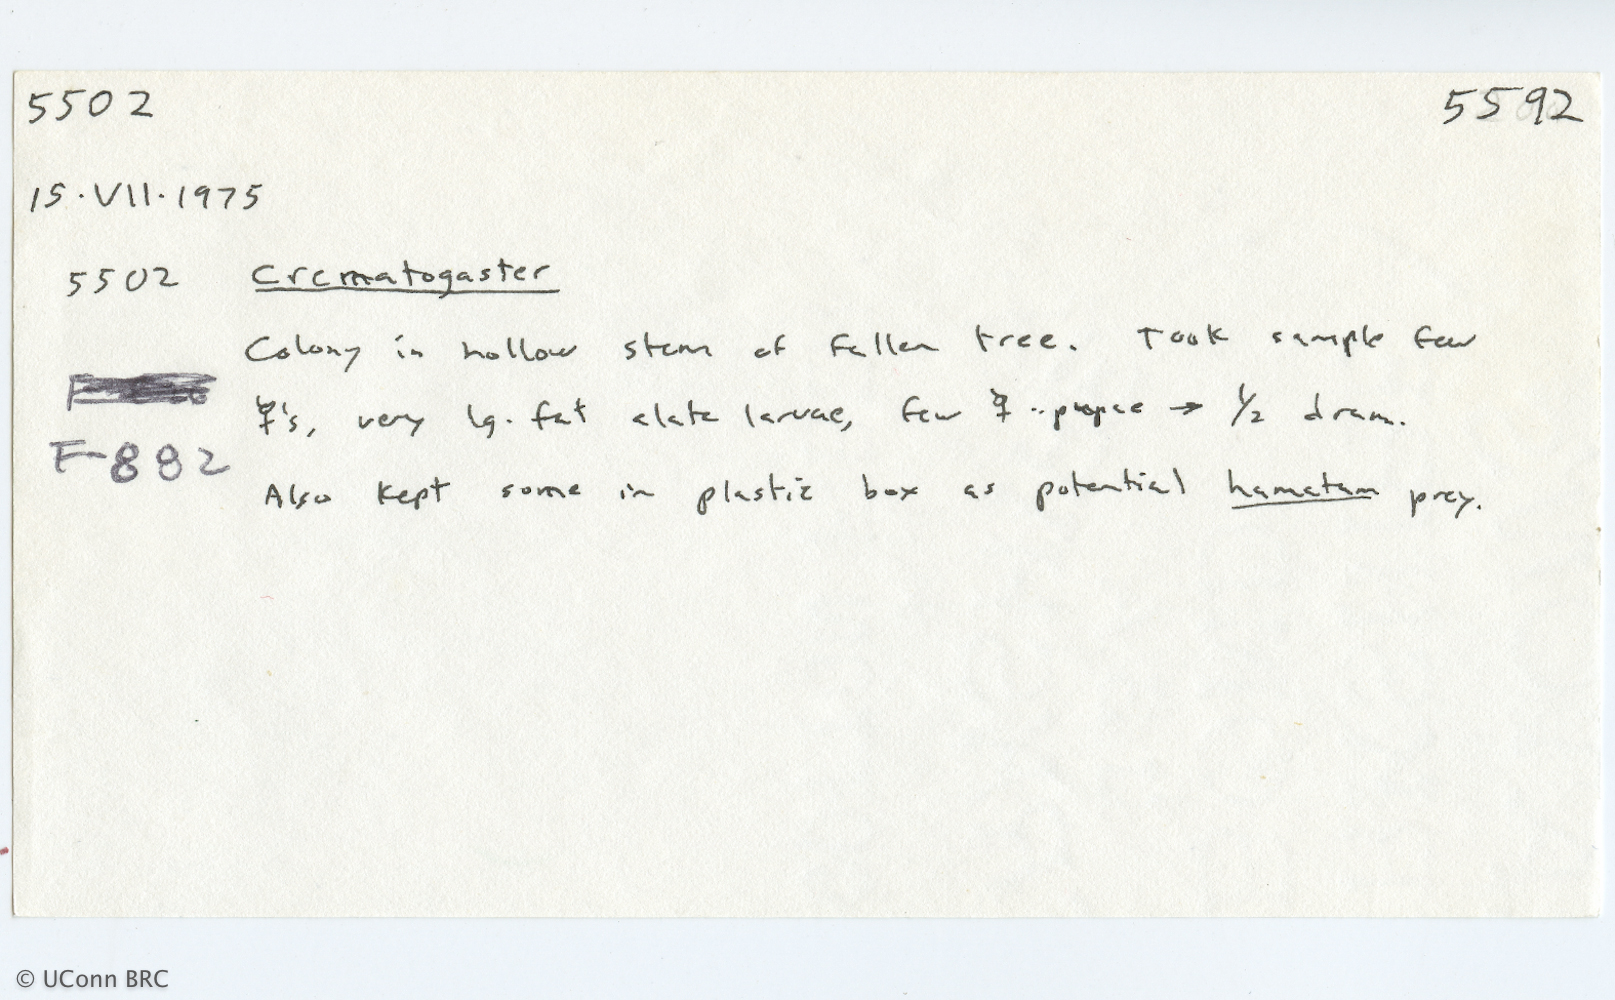 5502 5592
15·VII·1975
5502 Crematogaster
Colony in hollow stem of fallen tree. Took sample few
☿'s, very lg. fat alate larvae, few ☿ pupae → 1/2 dram.
F-882
Also kept some in plastic box as potential hamatum prey.
© UConn BRC